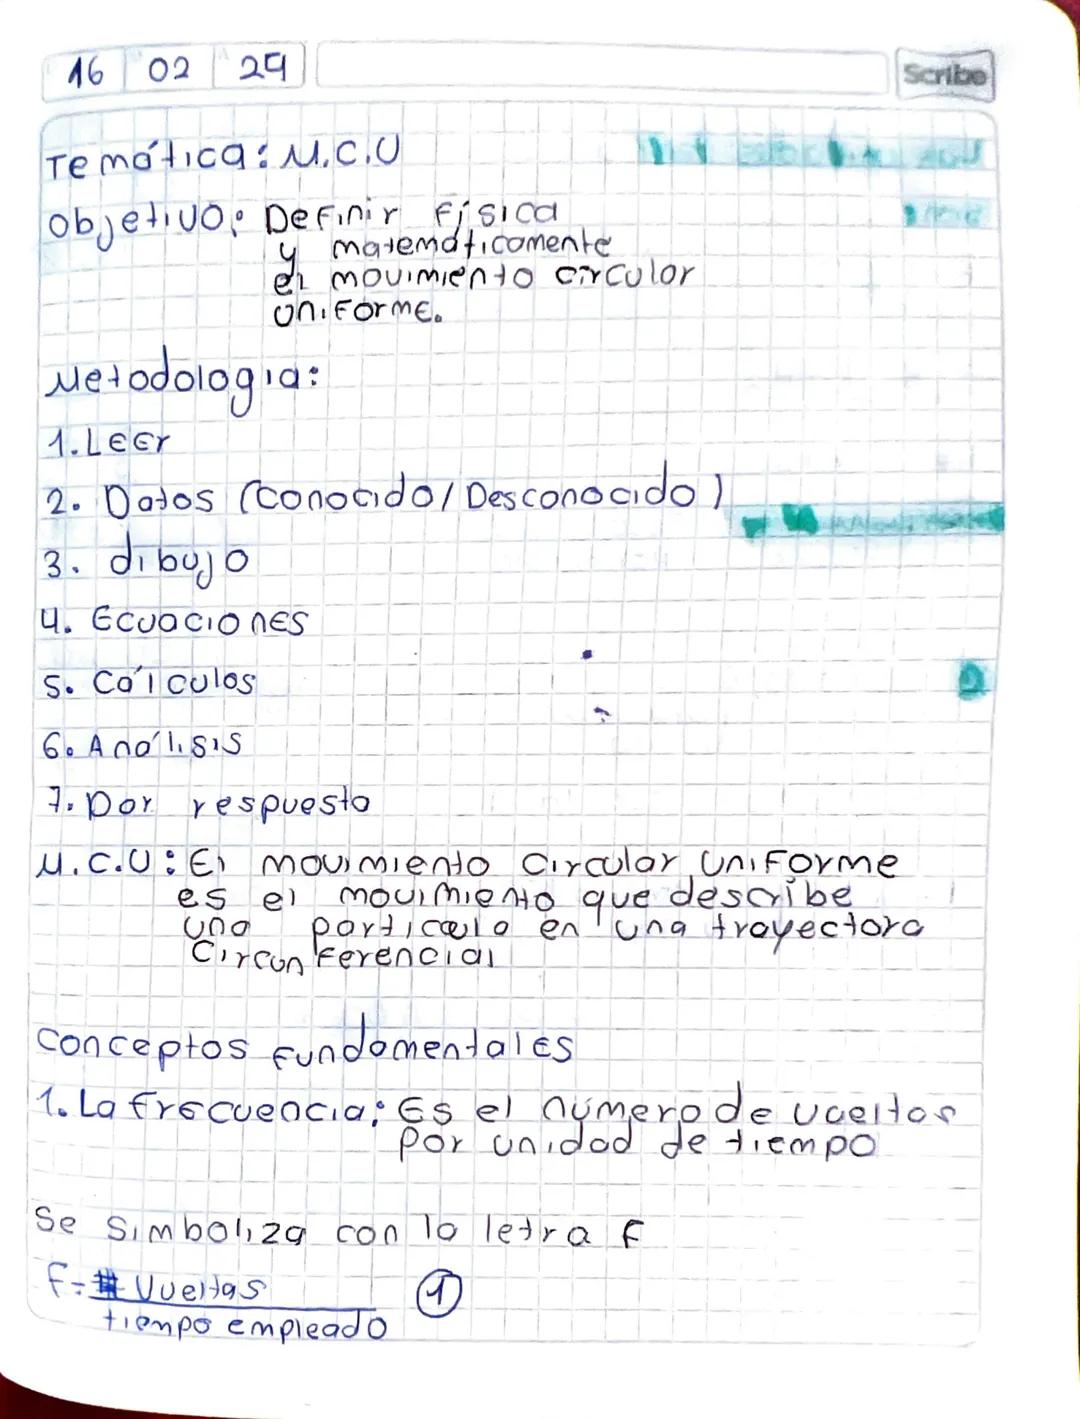 16 02 24
Scribe
Temática: M.C.U
Objetivo: Definir física
y matemáticamente
el movimiento circular
uniforme.
Metodologia:
1. Leer
2. Datos (conocido/Desconocido)
3. dibujo
4. Ecuaciones
5. Cálculos
6. Análisis
7. Dar respuesta
M.C.U: El movimiento circular uniforme
es el movimiento que describe
una particula en una trayectora
Circunferencial
Conceptos fundamentales
1. La frecuencia: Es el número de vueltas
por unidad de tiempo
Se simboliza con la letra f
f = # Vueltas ①
tiempo empleado